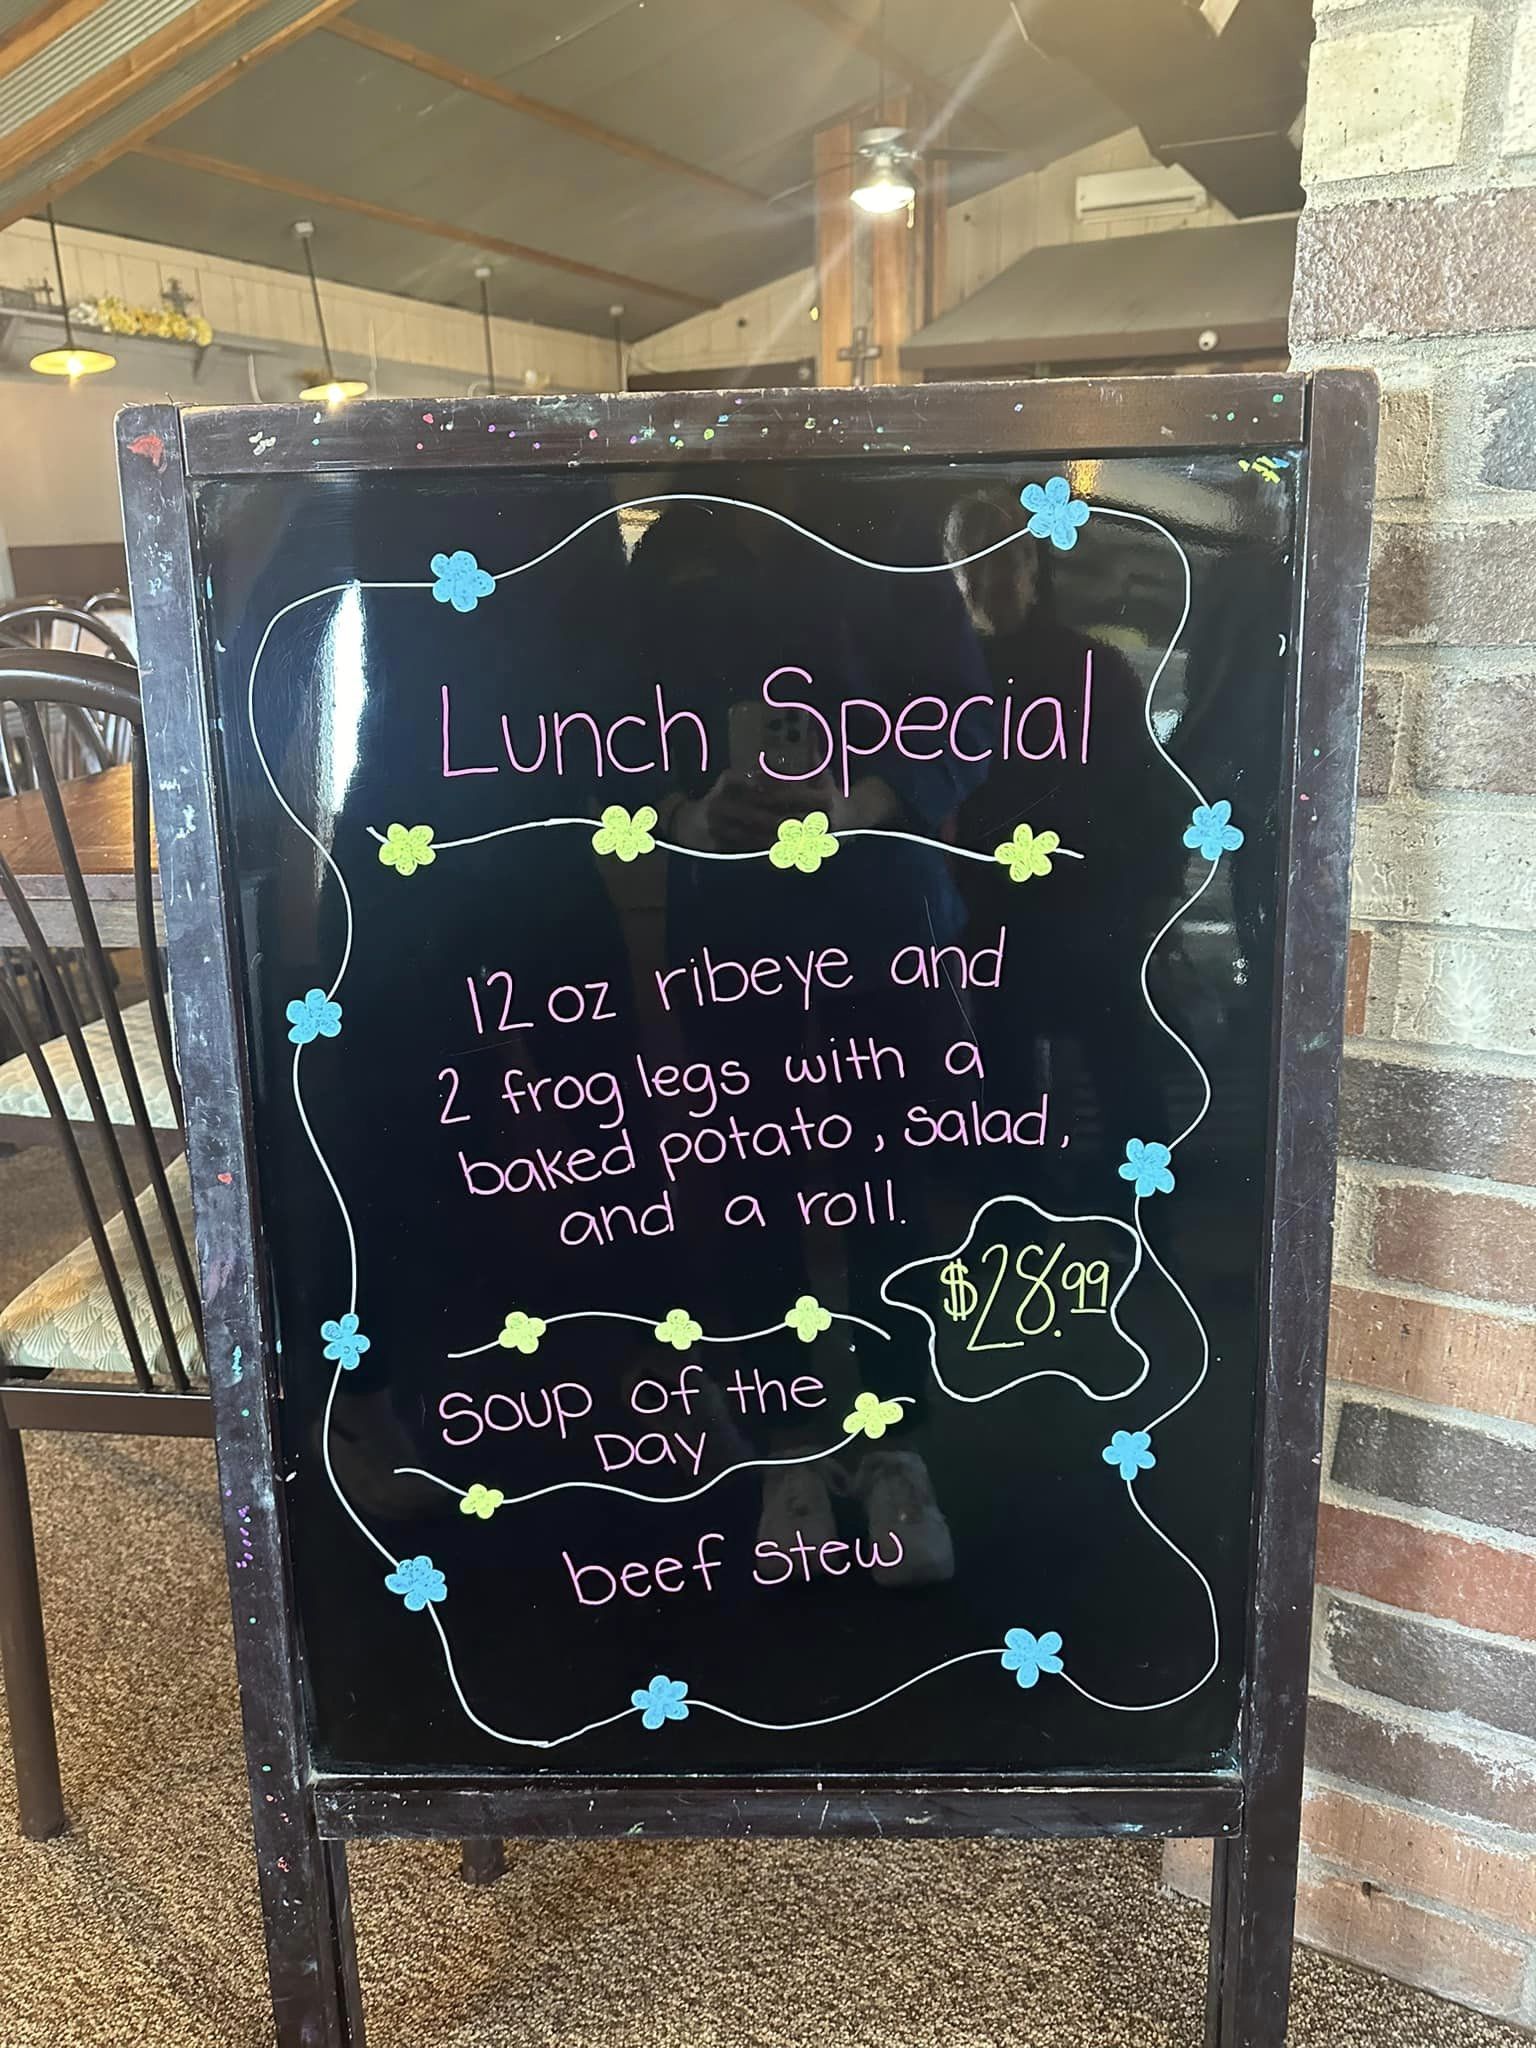 Lunch Special
12 oz ribeye and
2 frog legs with a
baked potato, salad,
and a roll.
$28.99
Soup of the
Day
beef stew